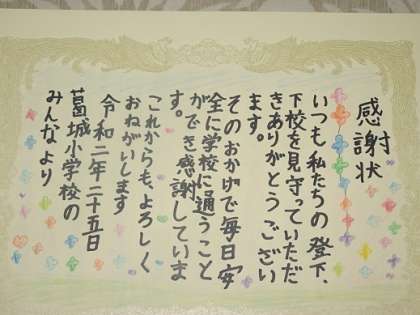 感謝状
いつも私たちの登下、
下校を見守っていただ
きありがとうござい
ます。
そのおかげで毎日安
全に学校に通うこと
ができ感謝していま
す。
これからも、よろしく
おねがいします
令和二年二十五日
葛城小学校の
みんなより